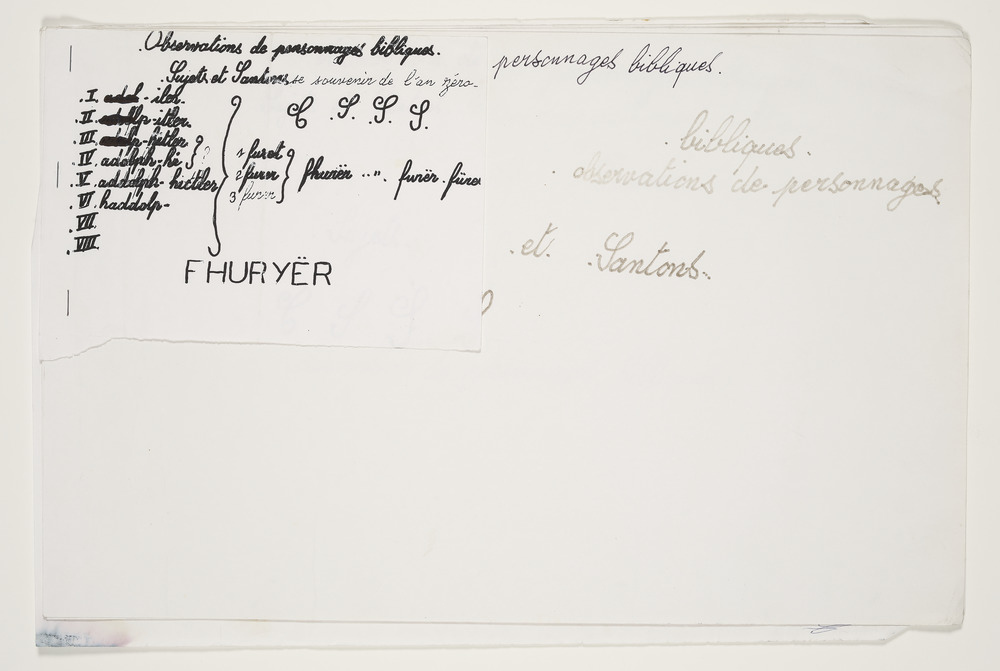 .Observations de personnages bibliques.
.Sujets et Santons se souvenir de l'an zéro-
.I. -iler.
.II. -itler.
.III. -hitler
.IV. adolph-hi
.V. addolph-hictler
.VI. haddolp-
.VII.
.VIII.
1 furet
2 furer
3
Phurër ..". furër. füre
FHURYËR
personnages bibliques.
. bibliques.
. observations de personnages
. et. .Santons..